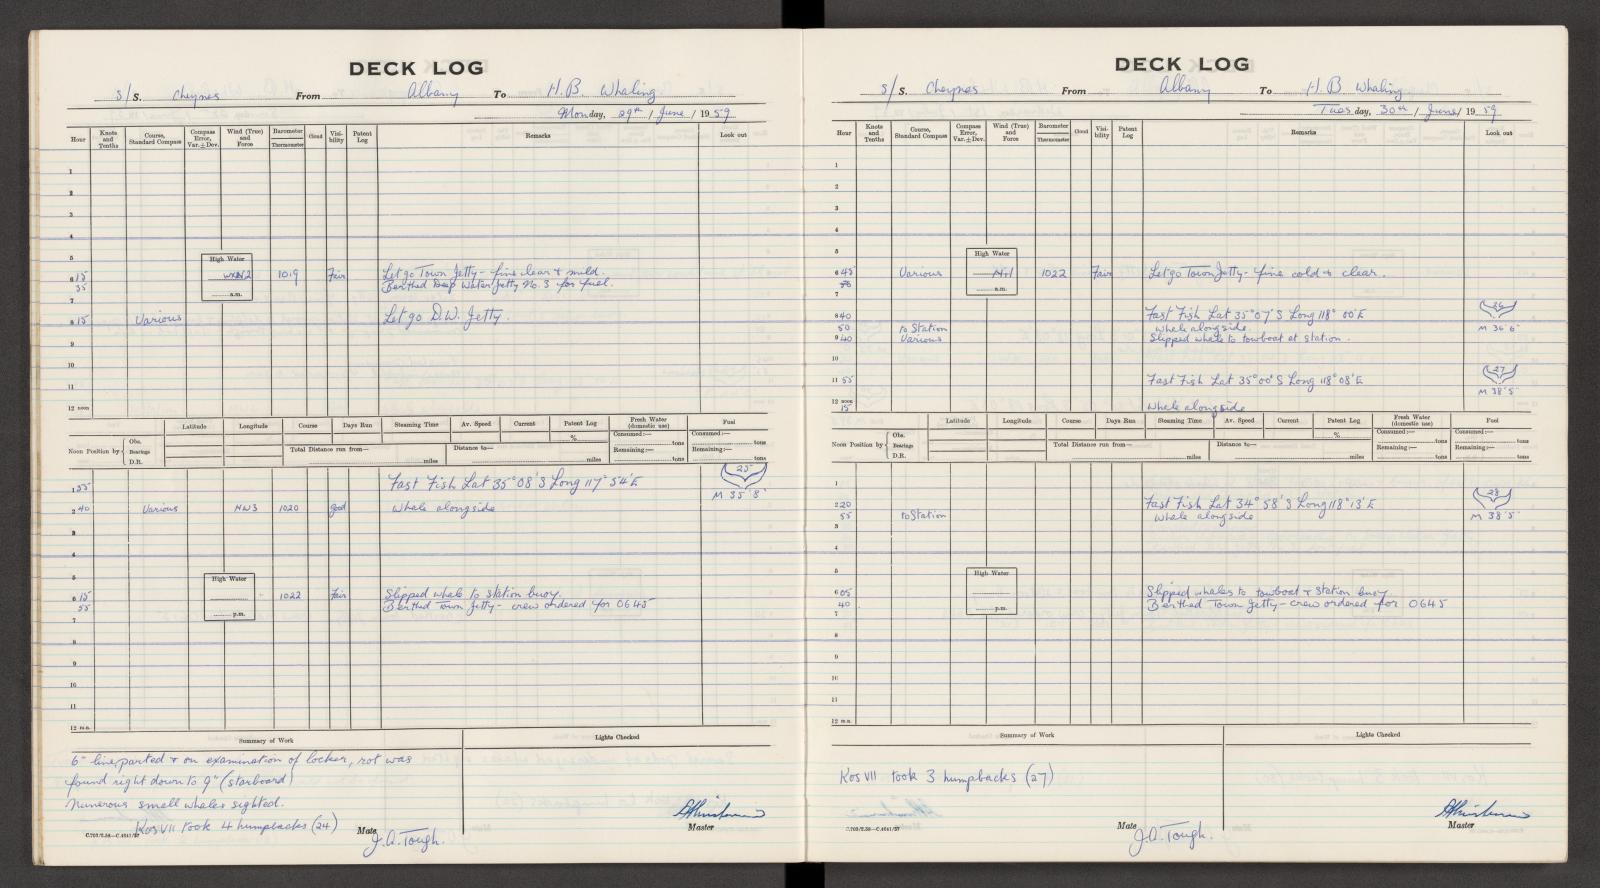 DECK LOG
S/S. Cheynes From Albany To H.B. Whaling
Monday, 29th / June / 1959
Hour Knots and Tenths Course, Standard Compass Compass Error, Var. ± Dev. Wind (True) and Force Barometer Thermometer Cloud Visibility Patent Log Remarks Look out
1
2
3
4
5 High Water
6 15 1019 Fair Let go Town Jetty - fine clear & mild.
35 Berthed Deep Water Jetty No. 3 for fuel.
a.m.
7
8 15 Various Let go D.W. Jetty.
9
10
11
12 noon
Noon Position by Obs. Bearings D.R. Latitude Longitude Course Days Run Steaming Time Av. Speed Current Patent Log % Fresh Water (domestic use) Fuel
Consumed:— tons Consumed:— tons
Total Distance run from— miles Distance to— miles Remaining:— tons Remaining:— tons
1 55 Fast Fish Lat 35° 08' S Long 117° 54' E 25
M 35' 8"
2 40 Various NW3 1020 good Whale alongside
3
4
5 High Water
6 15 1022 Fair Slipped whale to station buoy.
55 Berthed Town Jetty - crew ordered for 0645
p.m.
7
8
9
10
11
12 m.n.
Summary of Work Lights Checked
6" line parted & on examination of locker, rot was
found right down to 9" (starboard)
Numerous small whales sighted.
Kos VII took 4 humpbacks (24)
C.707/2.58—C.4641/57 Mate J.A. Tough. Master
DECK LOG
S/S. Cheynes From Albany To H.B. Whaling
Tues day, 30th / June / 1959
Hour Knots and Tenths Course, Standard Compass Compass Error, Var. ± Dev. Wind (True) and Force Barometer Thermometer Cloud Visibility Patent Log Remarks Look out
1
2
3
4
5 High Water
6 45 Various N+1 1022 Fair Let go Town Jetty - fine cold & clear.
a.m.
7
8 40 Fast Fish Lat 35° 07' S Long 118° 00' E 26
50 to Station Whale alongside. M 36' 6"
9 40 Various Slipped whale to towboat at station.
10
11 55 Fast Fish Lat 35° 00' S Long 118° 08' E 27
M 38' 5"
12 noon
15 Whale alongside
Noon Position by Obs. Bearings D.R. Latitude Longitude Course Days Run Steaming Time Av. Speed Current Patent Log % Fresh Water (domestic use) Fuel
Consumed:— tons Consumed:— tons
Total Distance run from— miles Distance to— miles Remaining:— tons Remaining:— tons
1
2 20 Fast Fish Lat 34° 58' S Long 118° 13' E 28
55 to Station Whale alongside M 38' 5"
3
4
5 High Water
6 05 Slipped whales to towboat & station buoy
40 Berthed Town Jetty - crew ordered for 0645
p.m.
7
8
9
10
11
12 m.n.
Summary of Work Lights Checked
Kos VII took 3 humpbacks (27)
C.707/2.58—C.4641/57 Mate J.A. Tough. Master